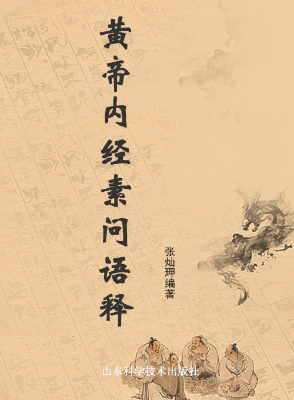 黄帝内经素问语释
张灿玾编著
山东科学技术出版社